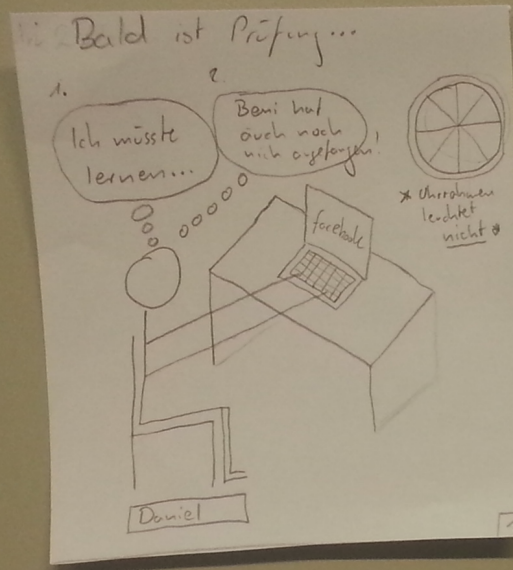 Bald ist Prüfung...
1.
Ich müsste
lernen...
2.
Beni hat
auch noch
nich angefangen!
* Uhrrahmen
leuchtet
nicht *
facebook
Daniel